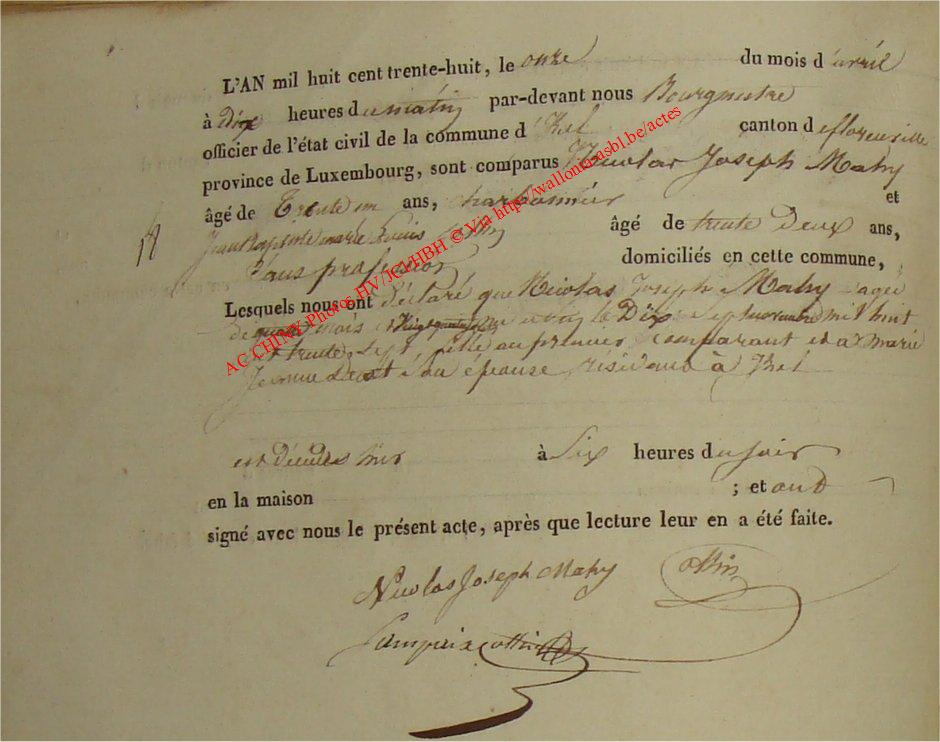 L'AN mil huit cent trente-huit, le onze du mois d'avril
à Dix heures du matin par-devant nous Bourgmestre
officier de l'état civil de la commune d'Izel canton de florenville
province de Luxembourg, sont comparus Nicolas Joseph Mahy
âgé de Trente un ans, charbonnier et
18
Jean Baptiste marie Louis âgé de trente Deux ans,
Sans profession domiciliés en cette commune,
Lesquels nous ont déclaré que Nicolas Joseph Mahy agée
de mois et jours né à Izel le Dix Sept novembre mil huit
cent trente Sept, fille au premier comparant et à marie
Jeanne Son épouse résidant à Izel
est décédée hier à Six heures du soir
en la maison ; et ont
signé avec nous le présent acte, après que lecture leur en a été faite.
Nicolas Joseph Mahy
AC CHINY Photos HV/JCV/HBH © Via http://walloniaasbl.be/actes